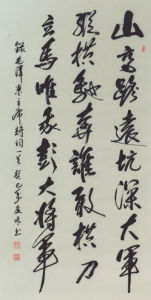 山高路遠坑深大軍
縱橫馳奔誰敢橫刀
立馬唯我彭大將軍
錄毛澤東主席詩詞一首 癸巳年